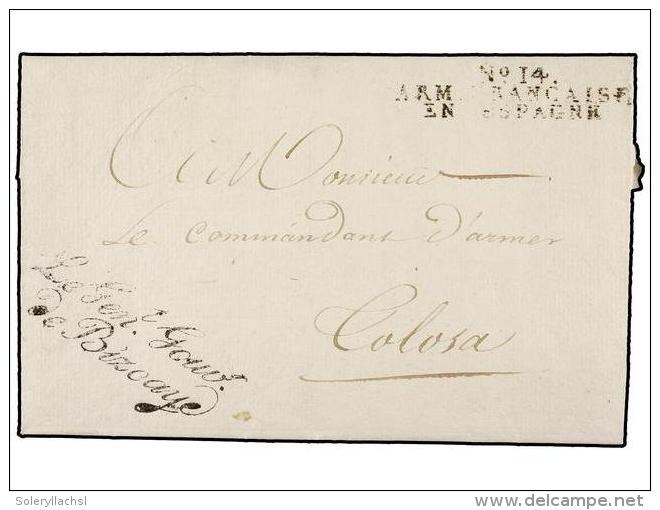 No 14.
ARM FRANÇAISE
EN ESPAGNE
A Monsieur
Le Commandant d'armes
Tolosa
Le Gen.l Gouv.r
de Bizcaye
Soleryllachsl
delcampe.net